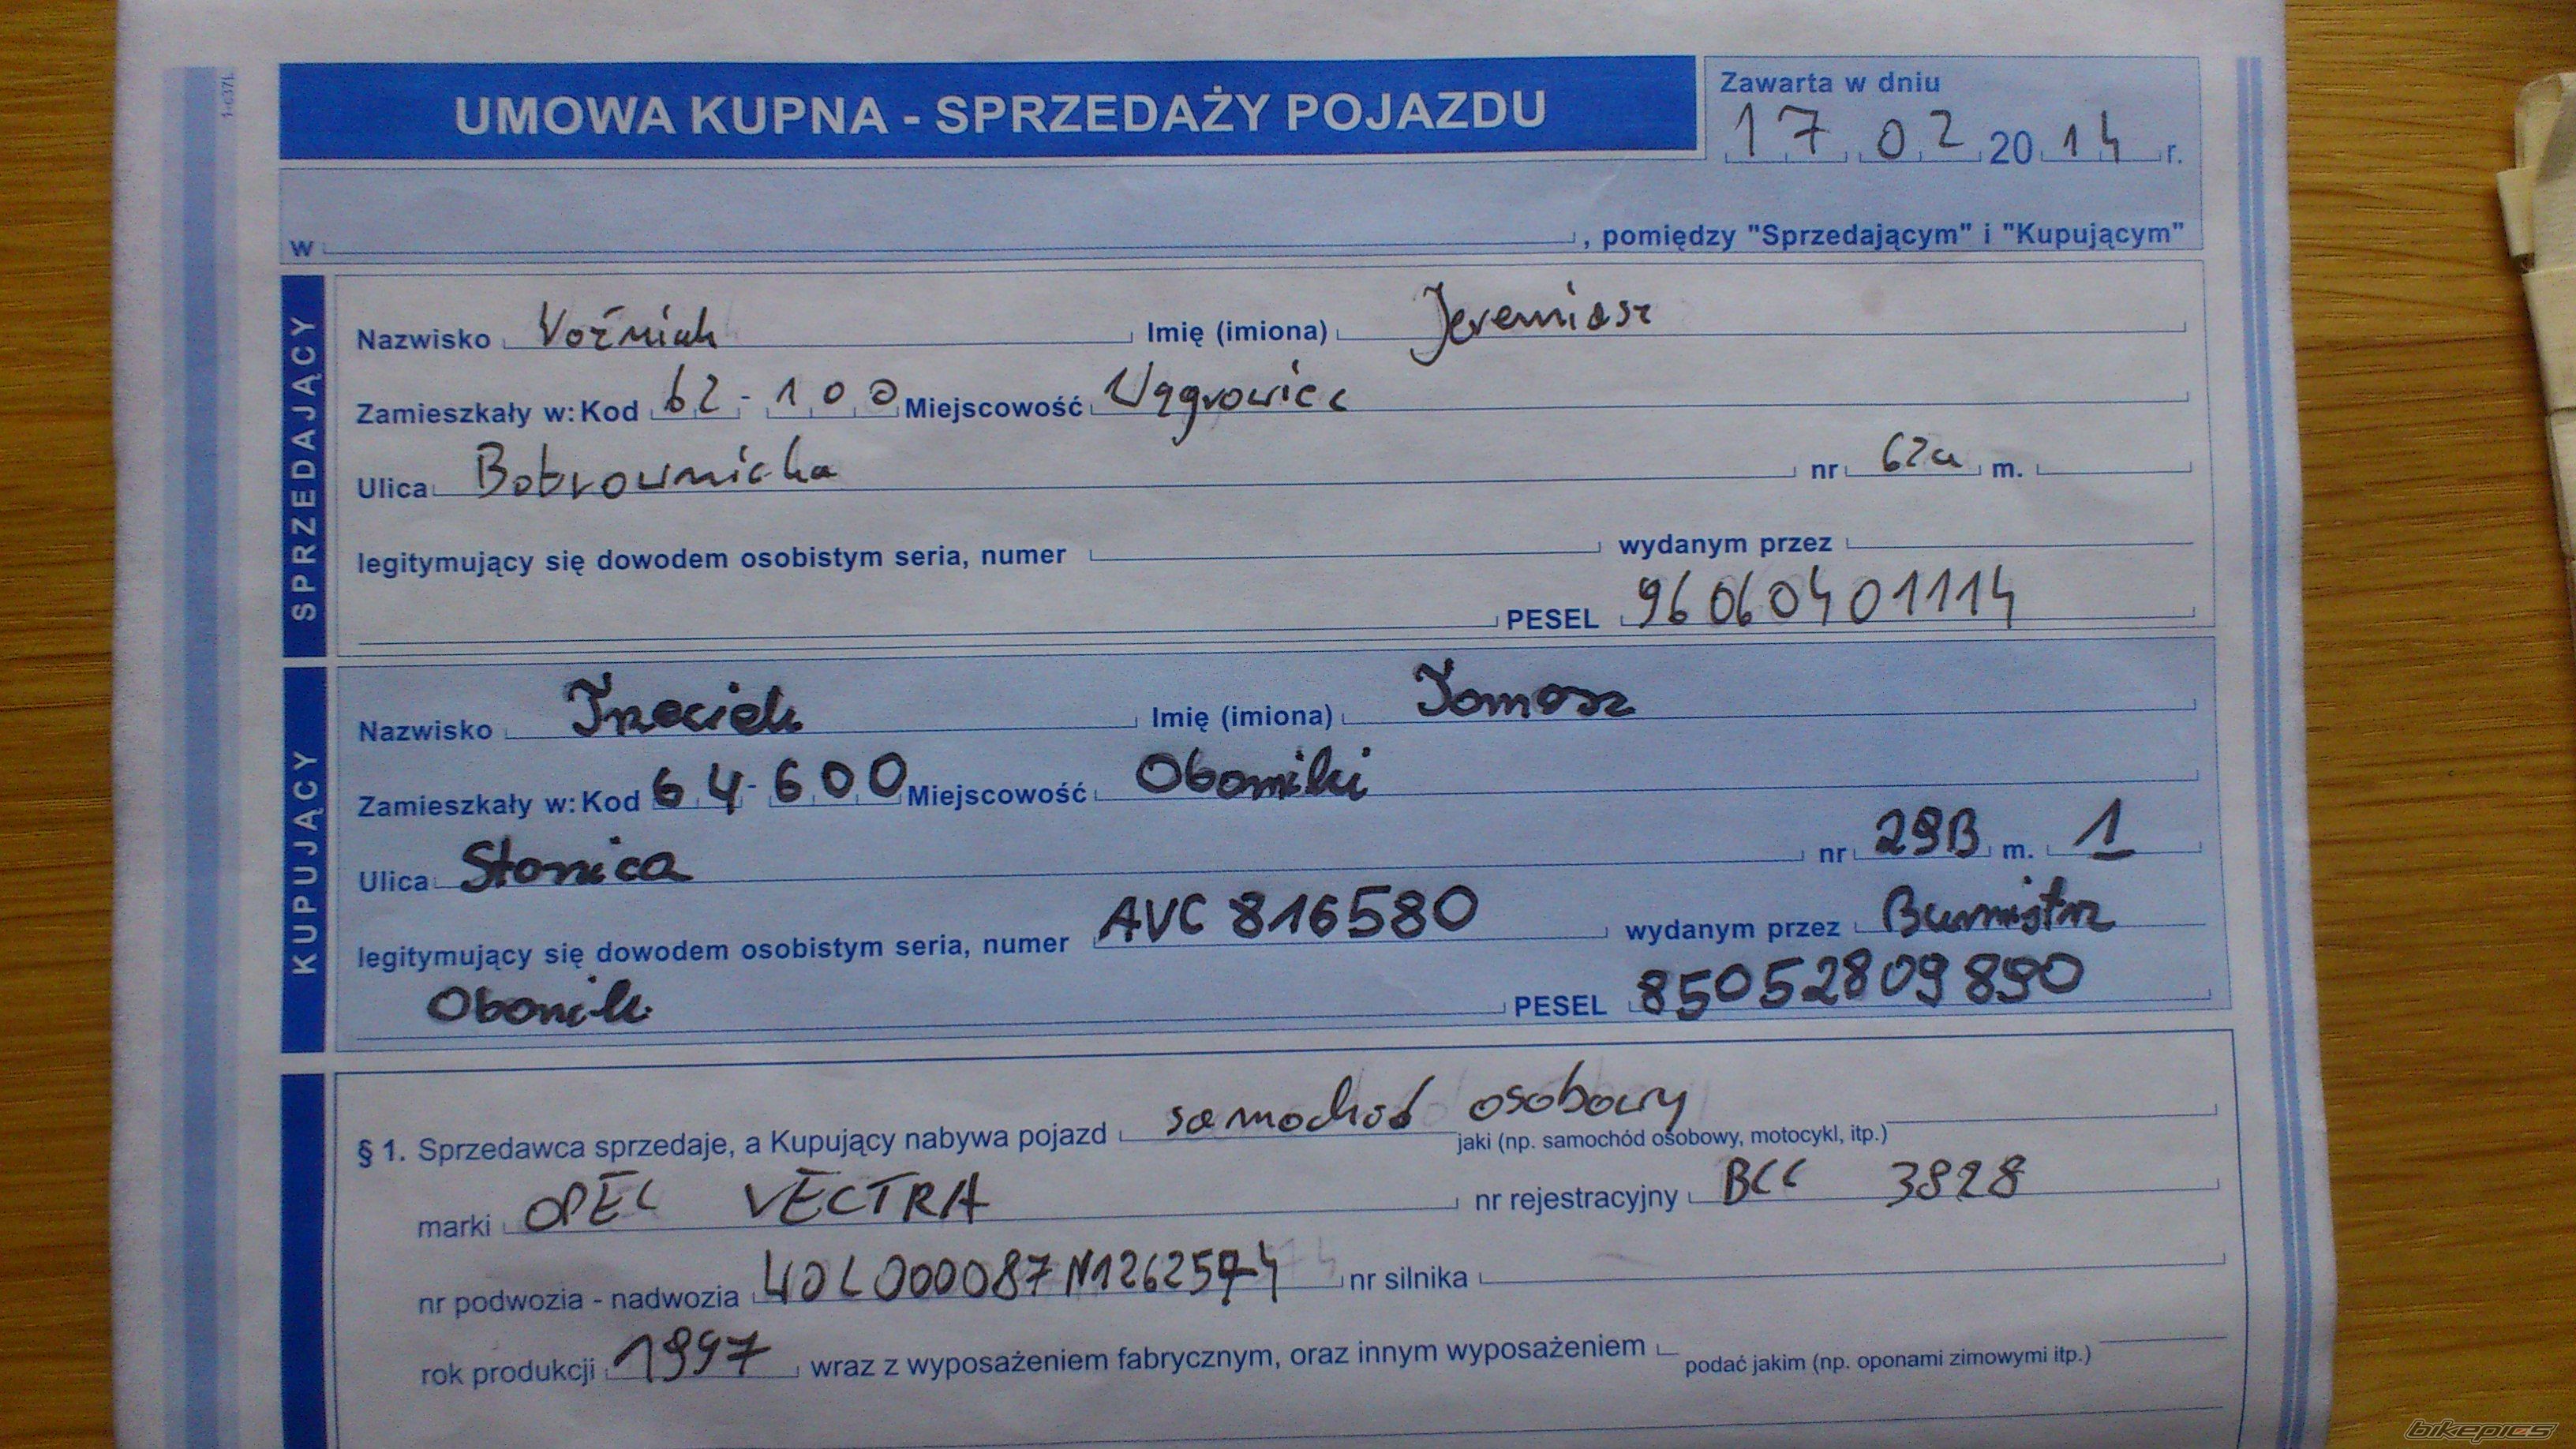 1-c37L
UMOWA KUPNA - SPRZEDAŻY POJAZDU
Zawarta w dniu
17 02 2014 r.
w , pomiędzy "Sprzedającym" i "Kupującym"
SPRZEDAJĄCY
Nazwisko Woźniak Imię (imiona) Jeremiasz
Zamieszkały w: Kod 62-100 Miejscowość Wągrowiec
Ulica Bobrownicka nr 62a m.
legitymujący się dowodem osobistym seria, numer wydanym przez
PESEL 96060401114
KUPUJĄCY
Nazwisko Trzeciak Imię (imiona) Tomasz
Zamieszkały w: Kod 64-600 Miejscowość Oborniki
Ulica Słonica nr 29B m. 1
legitymujący się dowodem osobistym seria, numer AVC 816580 wydanym przez Burmistrz
PESEL 85052809890
§ 1. Sprzedawca sprzedaje, a Kupujący nabywa pojazd samochód osobowy
jaki (np. samochód osobowy, motocykl, itp.)
marki OPEL VECTRA nr rejestracyjny BCC 3828
nr podwozia - nadwozia W0L000087N1262574 nr silnika
rok produkcji 1997 wraz z wyposażeniem fabrycznym, oraz innym wyposażeniem
podać jakim (np. oponami zimowymi itp.)
bikepics